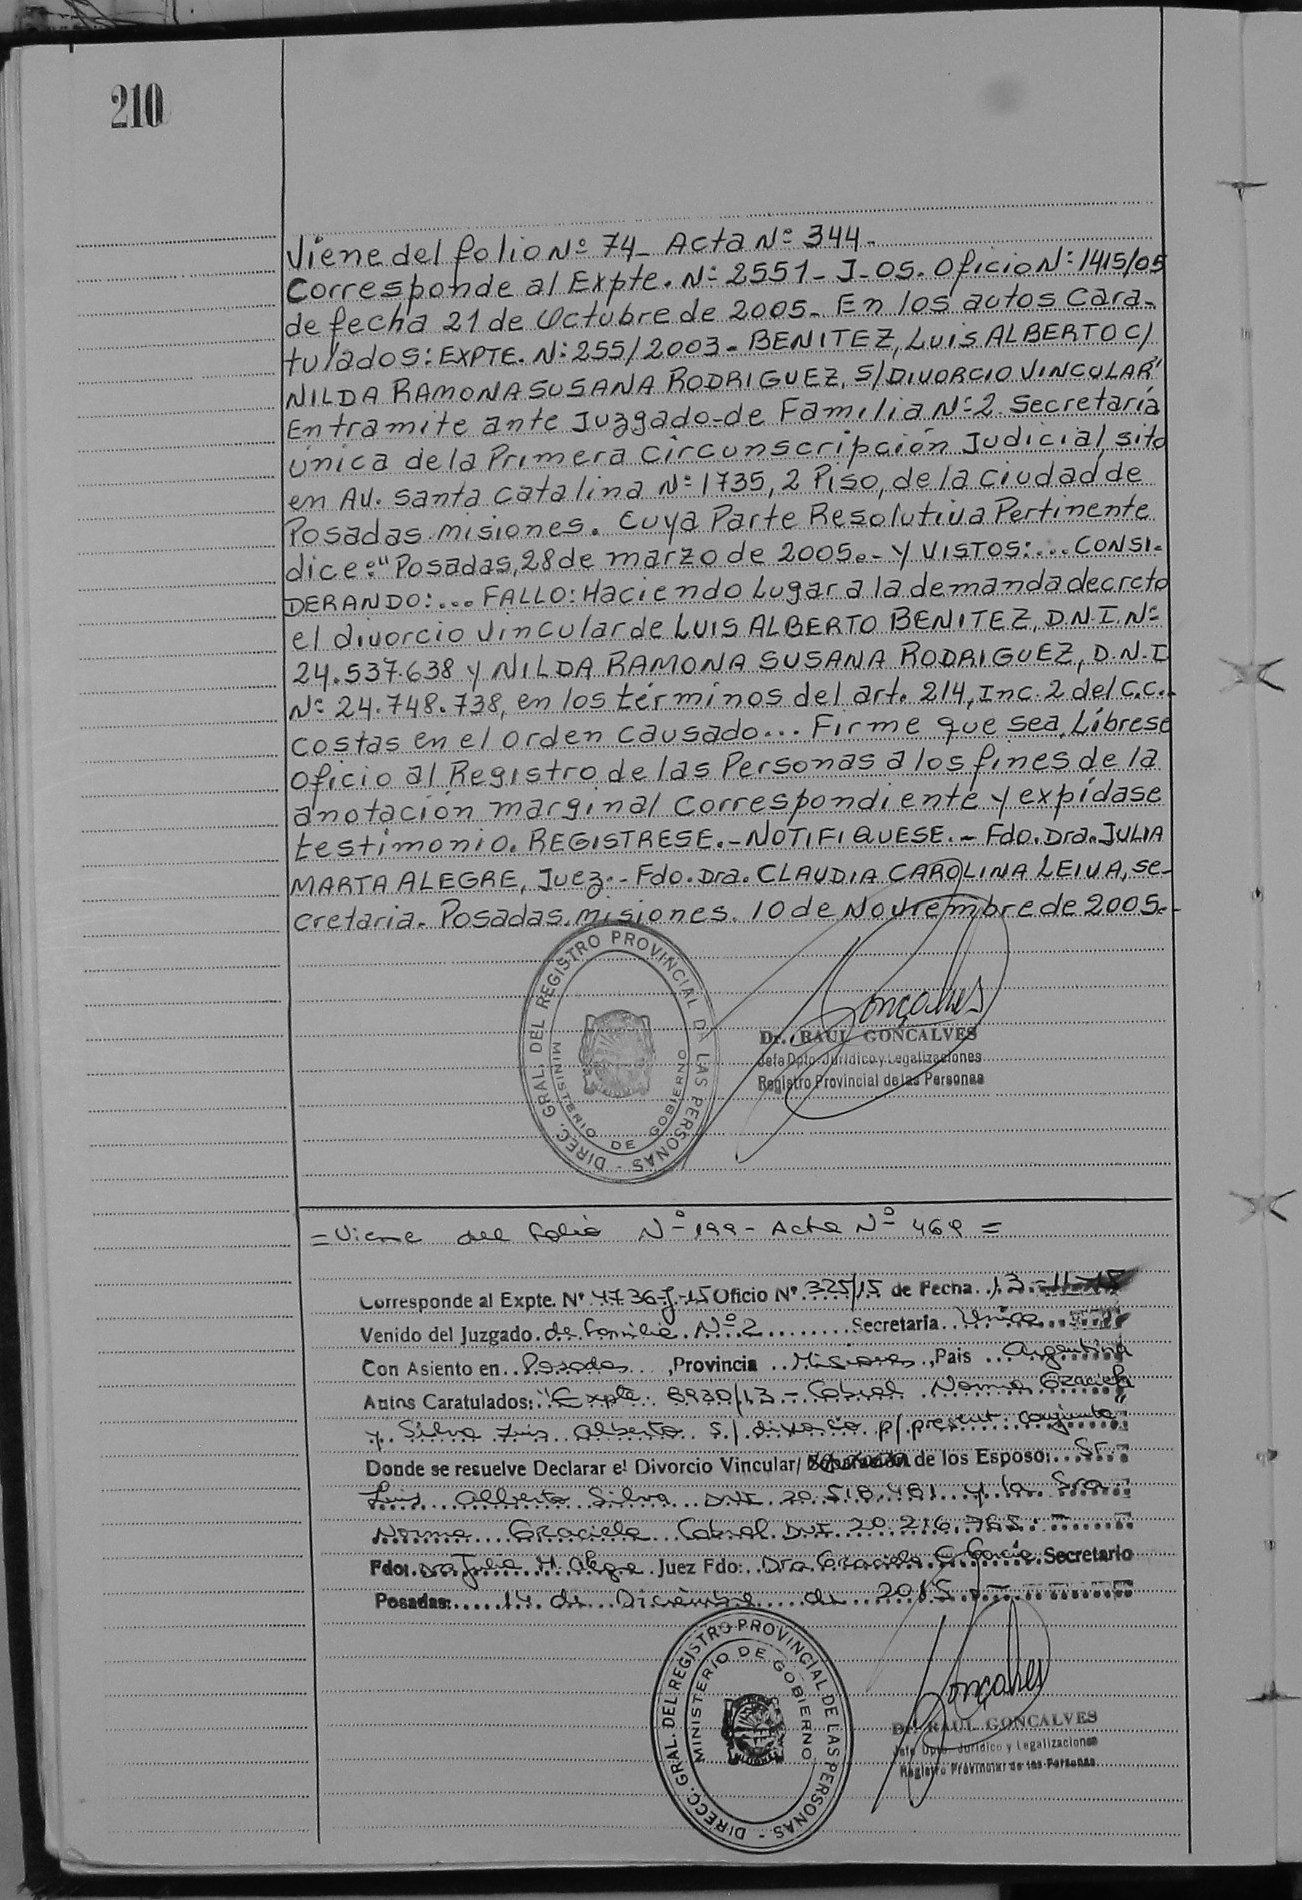 210
Viene del folio Nº 74_ Acta Nº 344_
Corresponde al Expte. Nº 2551_ J_05. Oficio Nº 1415/05
de fecha 21 de Octubre de 2005_ En los autos cara_
tulados: EXPTE. Nº 255/2003_ BENITEZ, LUIS ALBERTO C/
NILDA RAMONA SUSANA RODRIGUEZ, S/DIVORCIO VINCULAR"
En tramite ante Juzgado de Familia Nº 2 Secretaría
única de la Primera Circunscripción Judicial, sito
en Av. Santa Catalina Nº 1735, 2 Piso, de la Ciudad de
Posadas Misiones. Cuya Parte Resolutiva Pertinente
dice: "Posadas, 28 de marzo de 2005.- Y VISTOS:... CONSI-
DERANDO:... FALLO: Haciendo Lugar a la demanda decreto
el divorcio vincular de LUIS ALBERTO BENITEZ, D.N.I. Nº
24.537.638 y NILDA RAMONA SUSANA RODRIGUEZ, D.N.I
Nº 24.748.738, en los términos del art. 214, Inc. 2 del C.C._
Costas en el orden causado... Firme que sea, Líbrese
Oficio al Registro de las Personas a los fines de la
anotación marginal correspondiente y expídase
testimonio. REGISTRESE.-NOTIFIQUESE.- Fdo. Dra. JULIA
MARTA ALEGRE, Juez.- Fdo. Dra. CLAUDIA CAROLINA LEIVA, Se-
cretaria. Posadas, misiones. 10 de Noviembre de 2005.-
DIREC. GRAL. DEL REGISTRO PROVINCIAL D. LAS PERSONAS -
MINISTERIO DE GOBIERNO
Gonçalves
Dr. RAUL GONCALVES
Jefe Dpto. Jurídico y Legalizaciones
Registro Provincial de las Personas
= Viene del folio Nº 199 - Acta Nº 469 =
Corresponde al Expte. Nº 4736-J-15 Oficio Nº 325/15 de Fecha 13-11-15
Venido del Juzgado de Familia Nº 2 Secretaria Unica
Con Asiento en Posadas, Provincia Misiones, Pais Argentina
Autos Caratulados: "Expte. 8930/13 - Cabral Norma Graciela
y Silva Luis Alberto s/ divorcio p/ present. conjunta"
Donde se resuelve Declarar el Divorcio Vincular/ de los Esposo: Sr.
Luis Alberto Silva DNI 20.518.481 y la Sra
Norma Graciela Cabral DNI 20.216.785.-
Fdo: Dra Julia M. Alegre Juez Fdo: Dra Graciela García Secretario
Posadas: 14 de Diciembre de 2015 -
DIRECC. GRAL. DEL REGISTRO PROVINCIAL DE LAS PERSONAS -
MINISTERIO DE GOBIERNO
Gonçalves
Dr. RAUL GONCALVES
Jefe Dpto. Jurídico y Legalizaciones
Registro Provincial de las Personas